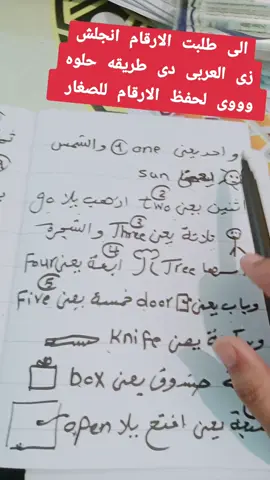 الى طلبت الارقام انجلش
زى العربى دى طريقه حلوه
وووى لحفظ الارقام للصغار
واحد يعنى one 1 والشمس
يعنى sun
اتنين يعنى two 2 اذهب يلا go
تلاتة يعنى Three 3 والشجرة
اسمها Tree اربعة يعنى Four 4
وباب يعنى door خمسة يعنى Five 5
يعنى knife
صندوق يعنى box
يعنى افتح يلا open